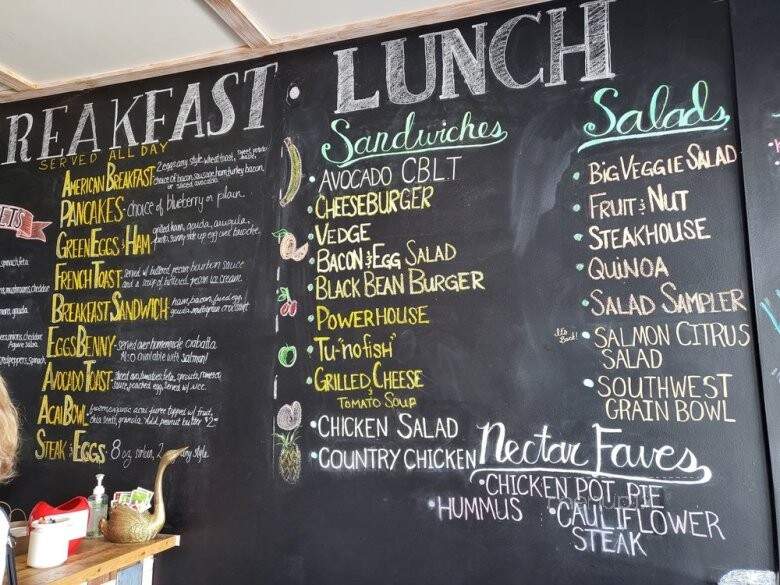 REAKFAST
SERVED ALL DAY
AMERICAN BREAKFAST- 2 eggs any style, wheat toast, sweet potato
choice of bacon, sausage, ham, turkey bacon,
or sliced avocado.
PANCAKES- choice of blueberry or plain.
GREEN EGGS & HAM grilled ham, gouda, arugula,
pesto, sunny side up egg over brioche
FRENCH TOAST served w/ buttered pecan bourbon sauce
and a scoop of buttered pecan ice cream.
BREAKFAST SANDWICH ham, bacon, fried egg,
gouda multigrain croissant
EGGS BENNY- served over homemade ciabatta
Also available with salmon!
AVOCADO TOAST- sliced avo, tomatoes, feta, sprouts,
sauce, poached egg. Served w/
ACAI BOWL- puree topped w/ fruit,
chia seeds, granola. Add peanut butter $2
STEAK & EGGS- 8oz sirloin, 2 any style.
ETS
spinach, feta
mushrooms, cheddar
gouda
cheddar
peppers, spinach
LUNCH
Sandwiches
• AVOCADO CBLT
• CHEESEBURGER
• VEDGE
• BACON & EGG SALAD
• BLACK BEAN BURGER
• POWERHOUSE
• TU-"NO FISH"
• GRILLED CHEESE
& TOMATO SOUP
• CHICKEN SALAD
• COUNTRY CHICKEN
Salads
• BIG VEGGIE SALAD
• FRUIT & NUT
• STEAKHOUSE
• QUINOA
• SALAD SAMPLER
It's Back!
• SALMON CITRUS
SALAD
• SOUTHWEST
GRAIN BOWL
Nectar Faves
• CHICKEN POT PIE
• HUMMUS • CAULIFLOWER
STEAK